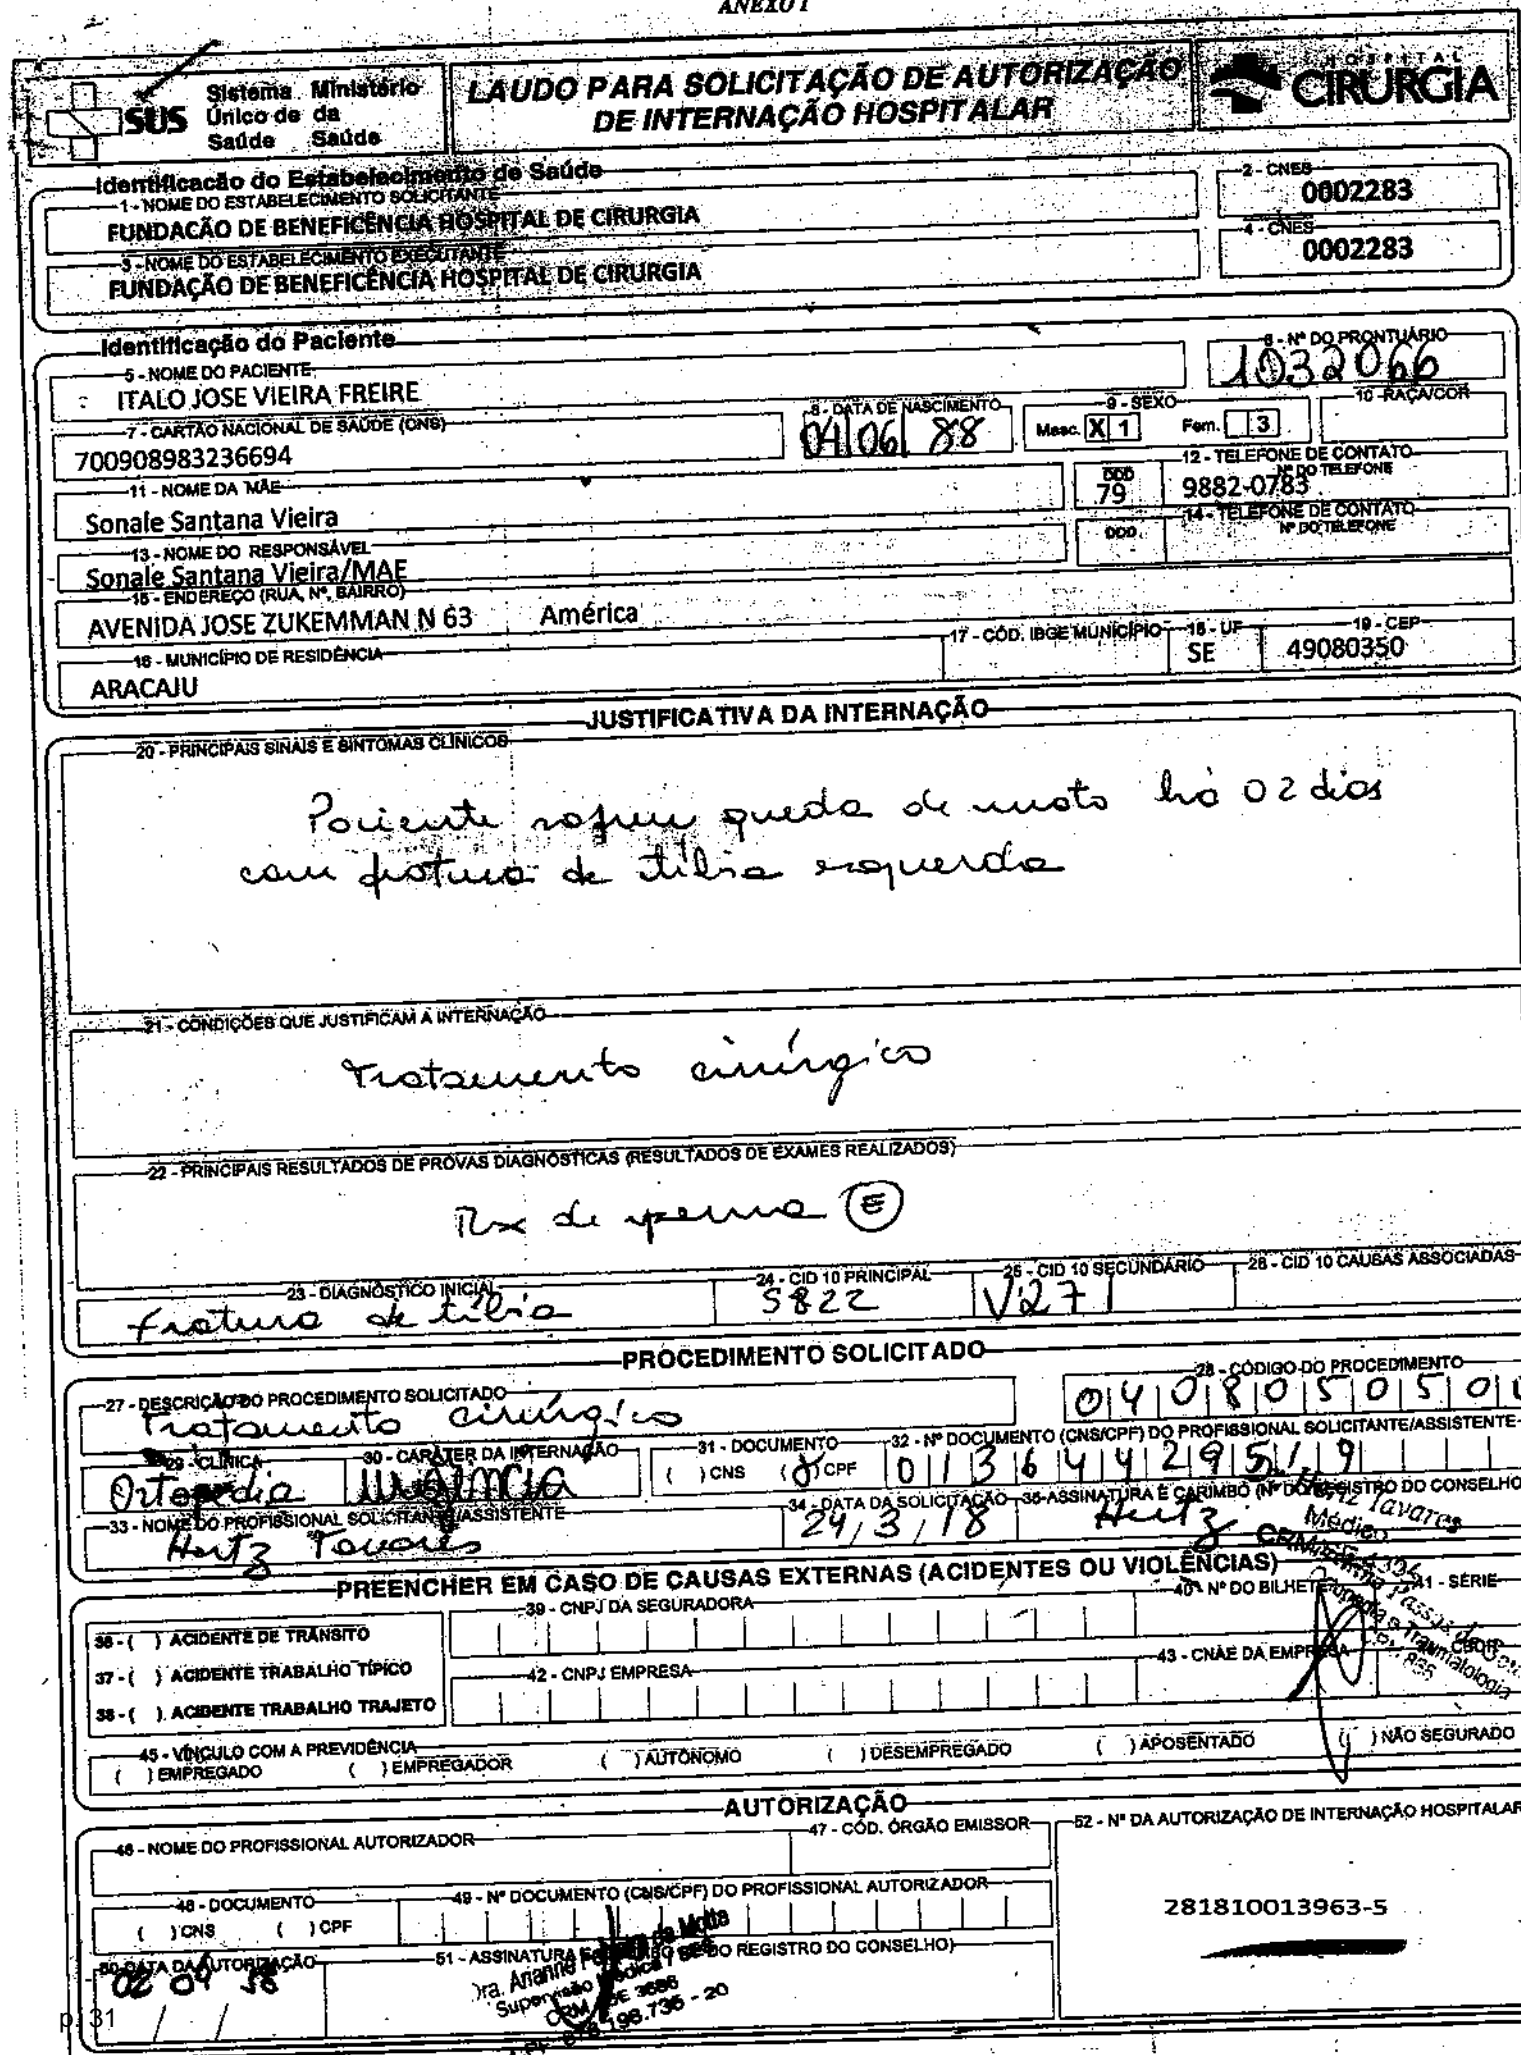 ANEXO I
SUS
Sistema Ministério
Único de da
Saúde Saúde
LAUDO PARA SOLICITAÇÃO DE AUTORIZAÇÃO
DE INTERNAÇÃO HOSPITALAR
HOSPITAL
CIRURGIA
Identificacão do Estabelecimento de Saúde
1 - NOME DO ESTABELECIMENTO SOLICITANTE
FUNDACÃO DE BENEFICÊNCIA HOSPITAL DE CIRURGIA
2 - CNES
0002283
3 - NOME DO ESTABELECIMENTO EXECUTANTE
FUNDAÇÃO DE BENEFICÊNCIA HOSPITAL DE CIRURGIA
4 - CNES
0002283
Identificação do Paciente
5 - NOME DO PACIENTE
ITALO JOSE VIEIRA FREIRE
6 - Nº DO PRONTUÁRIO
1032066
7 - CARTÃO NACIONAL DE SAÚDE (CNS)
700908983236694
8 - DATA DE NASCIMENTO
04/06/88
9 - SEXO
Masc. X 1 Fem. 3
10 - RAÇA/COR
11 - NOME DA MÃE
Sonale Santana Vieira
12 - TELEFONE DE CONTATO
DDD Nº DO TELEFONE
79 9882-0783
13 - NOME DO RESPONSÁVEL
Sonale Santana Vieira/MAE
14 - TELEFONE DE CONTATO
DDD Nº DO TELEFONE
15 - ENDEREÇO (RUA, Nº, BAIRRO)
AVENIDA JOSE ZUKEMMAN N 63 América
16 - MUNICÍPIO DE RESIDÊNCIA
ARACAJU
17 - CÓD. IBGE MUNICÍPIO
18 - UF
SE
19 - CEP
49080350
JUSTIFICATIVA DA INTERNAÇÃO
20 - PRINCIPAIS SINAIS E SINTOMAS CLÍNICOS
Paciente sofreu queda de moto há 02 dias
com fratura de tíbia esquerda
21 - CONDIÇÕES QUE JUSTIFICAM A INTERNAÇÃO
Tratamento cirúrgico
22 - PRINCIPAIS RESULTADOS DE PROVAS DIAGNÓSTICAS (RESULTADOS DE EXAMES REALIZADOS)
Rx de perna E
23 - DIAGNÓSTICO INICIAL
Fratura de tíbia
24 - CID 10 PRINCIPAL
S822
25 - CID 10 SECUNDÁRIO
V271
26 - CID 10 CAUSAS ASSOCIADAS
PROCEDIMENTO SOLICITADO
27 - DESCRIÇÃO DO PROCEDIMENTO SOLICITADO
Tratamento cirúrgico
28 - CÓDIGO DO PROCEDIMENTO
040805050
29 - CLÍNICA
Ortopedia
30 - CARÁTER DA INTERNAÇÃO
Urgência
31 - DOCUMENTO
( ) CNS (X) CPF
32 - Nº DOCUMENTO (CNS/CPF) DO PROFISSIONAL SOLICITANTE/ASSISTENTE
01364429519
33 - NOME DO PROFISSIONAL SOLICITANTE/ASSISTENTE
Hertz Tavares
34 - DATA DA SOLICITAÇÃO
24/3/18
35-ASSINATURA E CARIMBO (Nº DO REGISTRO DO CONSELHO
Hertz
Hertz Tavares
Médico
PREENCHER EM CASO DE CAUSAS EXTERNAS (ACIDENTES OU VIOLÊNCIAS)
36 - ( ) ACIDENTE DE TRÂNSITO
37 - ( ) ACIDENTE TRABALHO TÍPICO
38 - ( ) ACIDENTE TRABALHO TRAJETO
39 - CNPJ DA SEGURADORA
40 - Nº DO BILHETE
41 - SÉRIE
42 - CNPJ EMPRESA
43 - CNAE DA EMPRESA
Traumatologia
45 - VÍNCULO COM A PREVIDÊNCIA
( ) EMPREGADO ( ) EMPREGADOR ( ) AUTÔNOMO ( ) DESEMPREGADO ( ) APOSENTADO ( ) NÃO SEGURADO
AUTORIZAÇÃO
46 - NOME DO PROFISSIONAL AUTORIZADOR
47 - CÓD. ÓRGÃO EMISSOR
52 - Nº DA AUTORIZAÇÃO DE INTERNAÇÃO HOSPITALAR
281810013963-5
48 - DOCUMENTO
( ) CNS ( ) CPF
49 - Nº DOCUMENTO (CNS/CPF) DO PROFISSIONAL AUTORIZADOR
50-DATA DA AUTORIZAÇÃO
02 04 18
51 - ASSINATURA E CARIMBO (Nº DO REGISTRO DO CONSELHO)
Dra. Arianne da Motta
Supervisão Médica / SES
CRM / SE 3686
198.735 - 20
p. 31